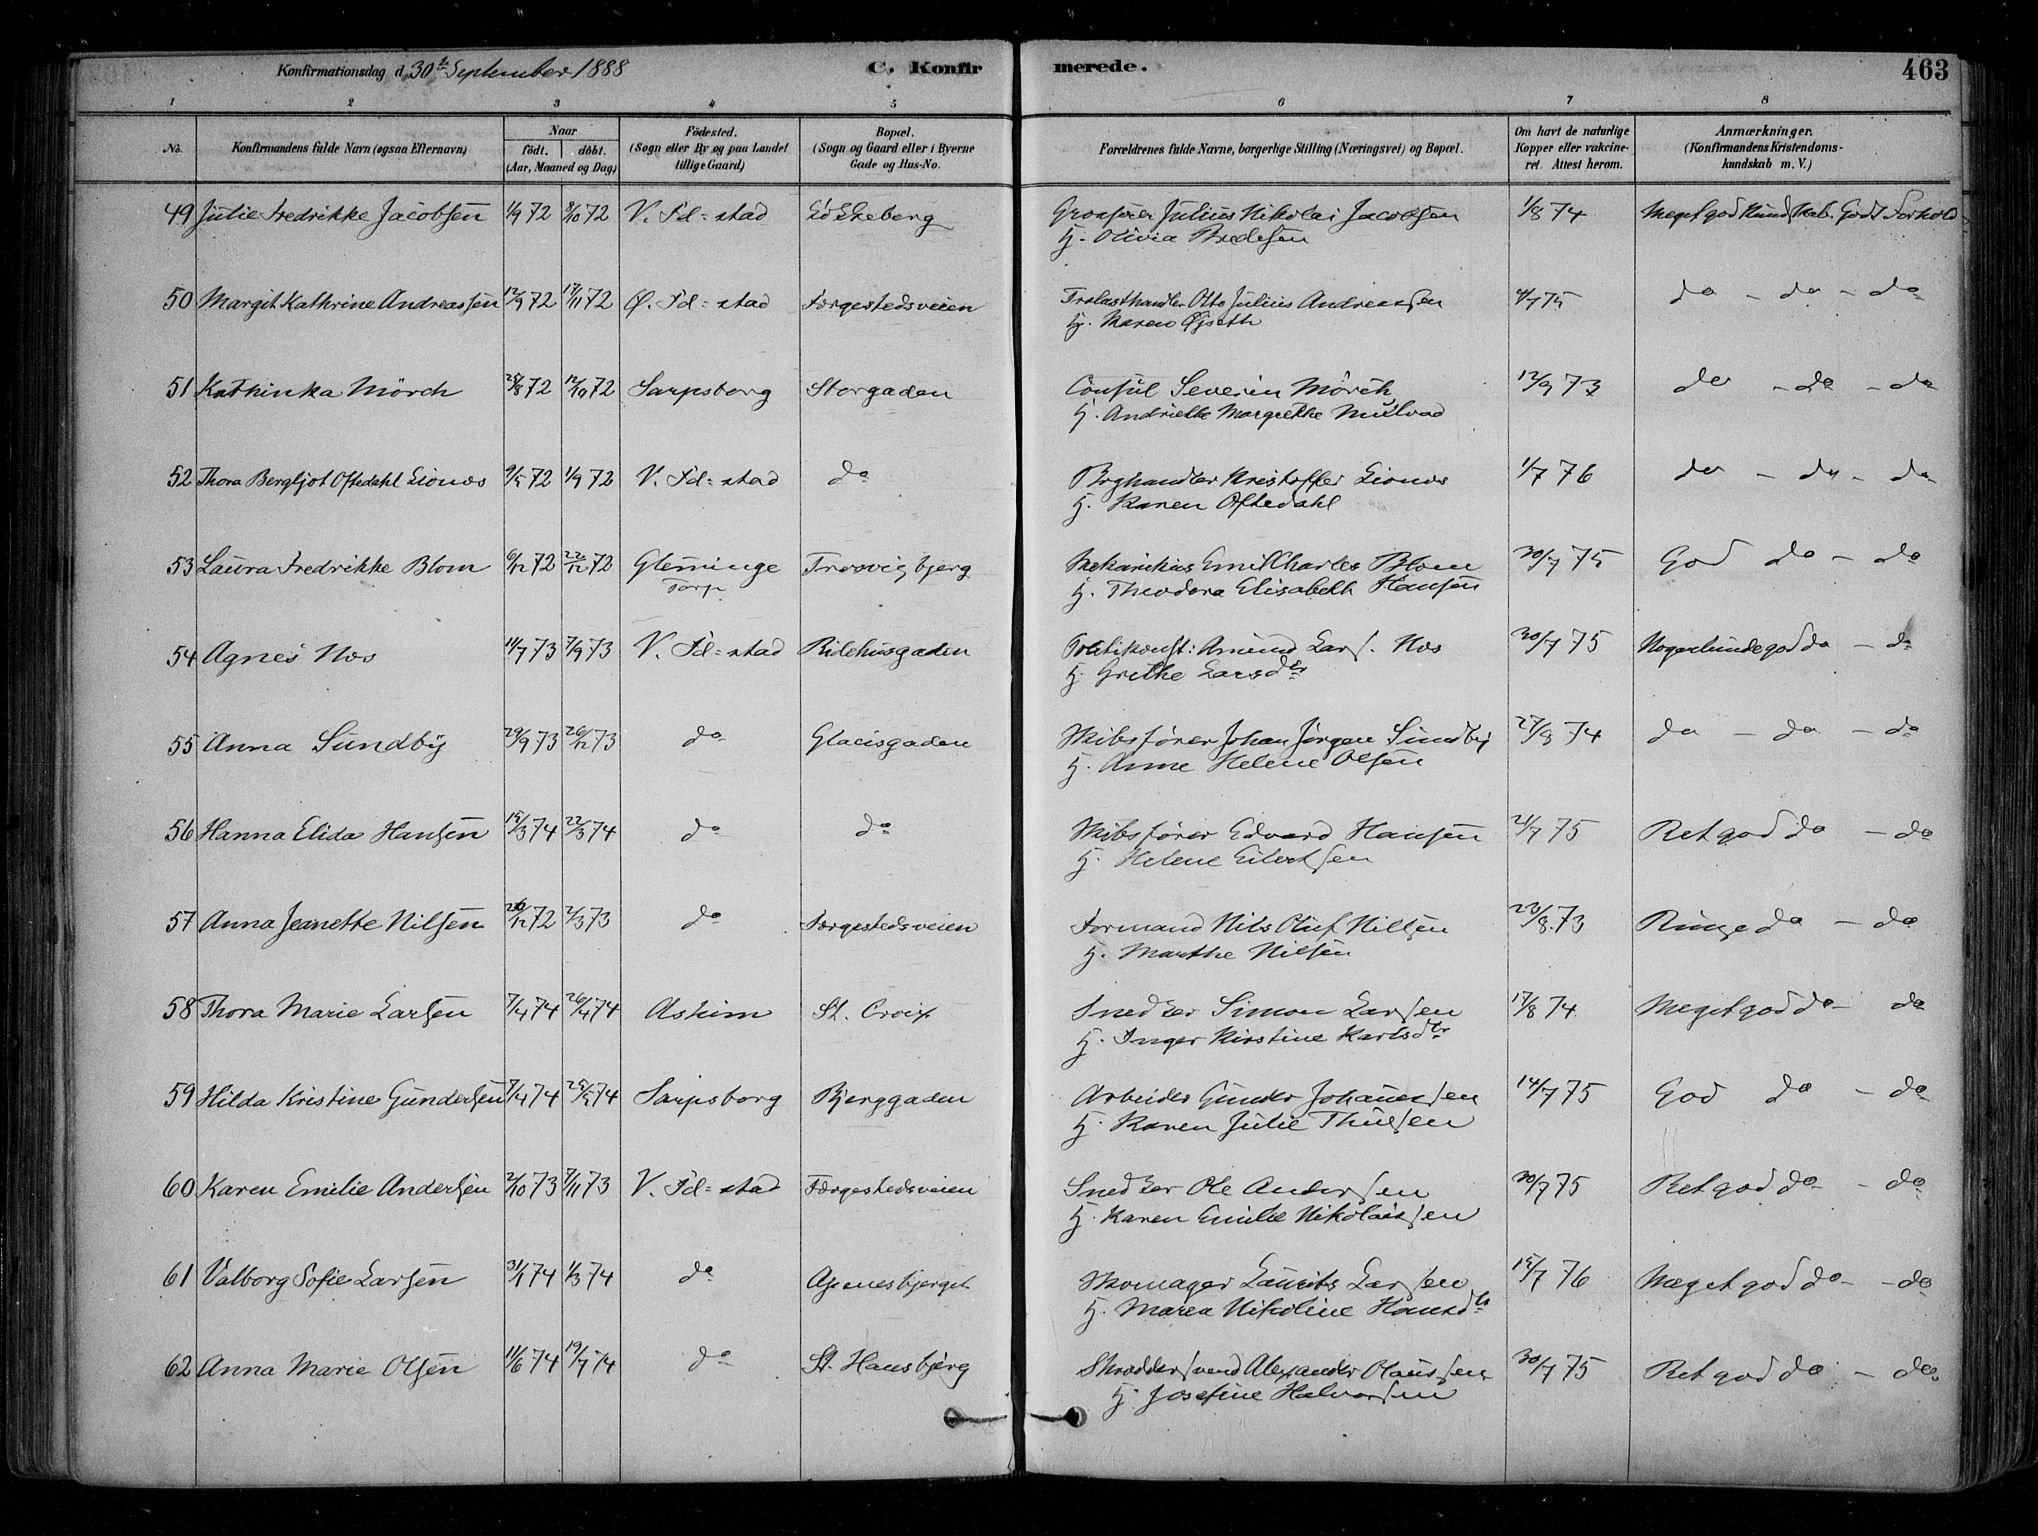 Konfirmationsdag d. 30te September 1888 C. Konfirmerede. 463
1 2 3 4 5 6 7 8
No. Konfirmandens fulde Navn (ogsaa Efternavn) Naar födt. döbt. (Aar, Maaned og Dag) Födested. (Sogn eller By og paa Landet tillige Gaard) Bopæl. (Sogn og Gaard eller i Byerne Gade og Hus-No. Forældrenes fulde Navne, borgerlige Stilling (Næringsvei) og Bopæl. Om havt de naturlige Kopper eller vakcineret. Attest herom. Anmærkninger. (Konfirmandens Kristendomskundskab m. V.)
49 Julie Fredrikke Jacobsen 1/9 72 8/10 72 V. Fd=stad Ekeberg Grosserer Julius Nikolai Jacobsen 1/8 74 Meget god Kundskab. Godt Forhold
H. Olivia Bredesen
50 Margit Kathrine Andreassen 12/9 72 17/11 72 Ø. Fd=stad Færgestedsveien Trælasthandler Otto Julius Andreassen 4/7 75 do - do - do
H. Maren Øgseth
51 Kathinka Mörch 27/8 72 12/10 72 Sarpsborg Storgaden Consul Severin Mörch 12/9 73 do - do - do
H. Andrikke Margrethe
52 Thora Bergljot Oftedahl Lionæs 9/5 72 1/9 72 V. Fd=stad do Boghandler Kristoffer Lionæs 1/7 76 do - do - do
H. Karen Oftedahl
53 Laura Fredrikke Blom 6/12 72 22/12 72 Glemminge Torp Trosvigbjerg Mekanikus Emil Charles Blom 30/7 75 God do - do
H. Theodora Elisabeth Hansen
54 Agnes Næs 11/7 73 7/9 73 V. Fd=stad Rilehusgaden Politikonst: Amund Lars. Næs 30/7 75 Nogenlunde god do - do
H. Grethe Larsdtr
55 Anna Sundby 29/9 73 26/12 73 do Glacisgaden Skibsfører Johan Jörgen Sundby 27/8 74 do - do - do
H. Anne Helene Olsen
56 Hanna Elida Hansen 15/3 74 22/3 74 do do Skibsfører Edvard Hansen 21/7 75 Ret god do - do
H. Helene Eilertsen
57 Anna Jeanette Nilsen 26/12 72 2/3 73 do Færgestedsveien Formand Nils Oluf Nilsen 20/8. 73 Ringe do - do
H. Marthe Nilsen
58 Thora Marie Larsen 7/4 74 26/4 74 Askim St. Croix Snedker Simon Larsen 17/8 74 Meget god do - do
H. Inger Kirstine Karlsdtr
59 Hilda Kristine Gundersen 7/4 74 25/5 74 Sarpsborg Bjerggaden Arbeider Gunder Johannesen 14/7 75 God do - do
H. Karen Julie Thuesen
60 Karen Emilie Andersen 2/10 73 7/11 73 V. Fd=stad Færgestedsveien Snedker Ole Andersen 30/7 75 Ret god do - do
H. Karen Emilie Nikolaisen
61 Valborg Sofie Larsen 31/1 74 1/3 74 do Apenesbjerget Skomager Laurits Larsen 15/7 76 Meget god do - do
H. Maren Nikoline Hansdtr
62 Anna Marie Olsen 11/6 74 19/7 74 do St. Hansbjerg Skræddersvend Alexander Olaussen 30/7 75 Ret god do - do
H. Josefine Halvorsen